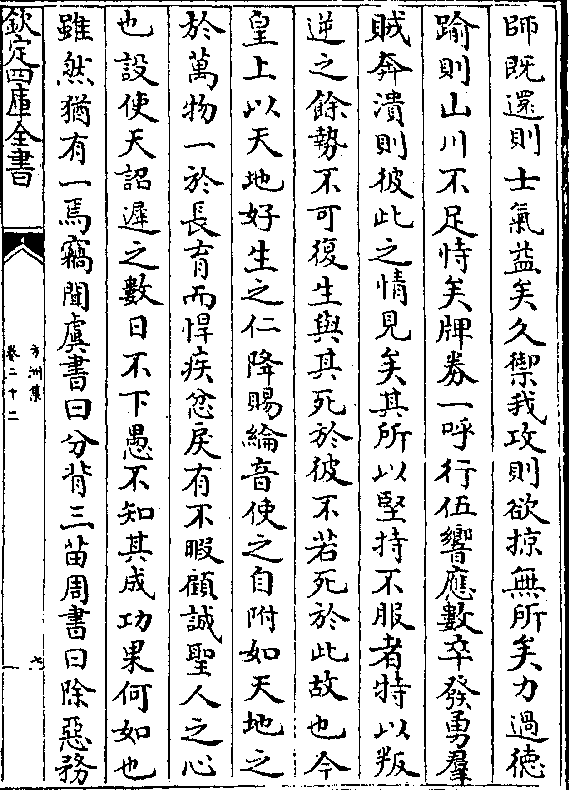 師既還則士氣益矣久禦我攻則欲掠無所矣力過德
踰則山川不足恃矣牌券一呼行伍響應數卒發勇羣
賊奔潰則彼此之情見矣其所以堅持不服者特以叛
逆之餘勢不可復生與其死於彼不若死於此故也今
皇上以天地好生之仁降賜綸音使之自附如天地之
於萬物一於長育而悍疾忿戾有不暇顧誠聖人之心
也設使天詔遲之數日不下愚不知其成功果何如也
雖然猶有一焉竊聞虞書曰分背三苗周書曰除惡務
欽定四庫全書
方洲集
卷二十二